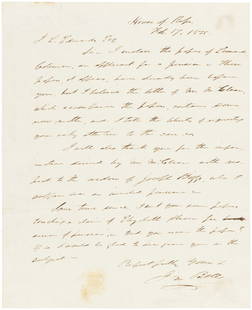 House of Reps
Feb 17, 18
J L Edwards Esq
Sir I enclose the papers of
Coleman, an applicant for a pension These
papers I apprise, have already been before
you but I believe the letter of Mr McClean
which accompanies the papers contains some
new matter, and I take the liberty of requesting
your early attention to the case
I will also thank you for the infor
mation desired by Mr McClean with re
gard to the widow of Joseph Biggs, who I
was an invalid pensioner
Some time since I sent you some papers
touching claim of Elizabeth for
of pension, did you receive the papers?
I should be glad to hear from you on the
subject
Respectfully Yours